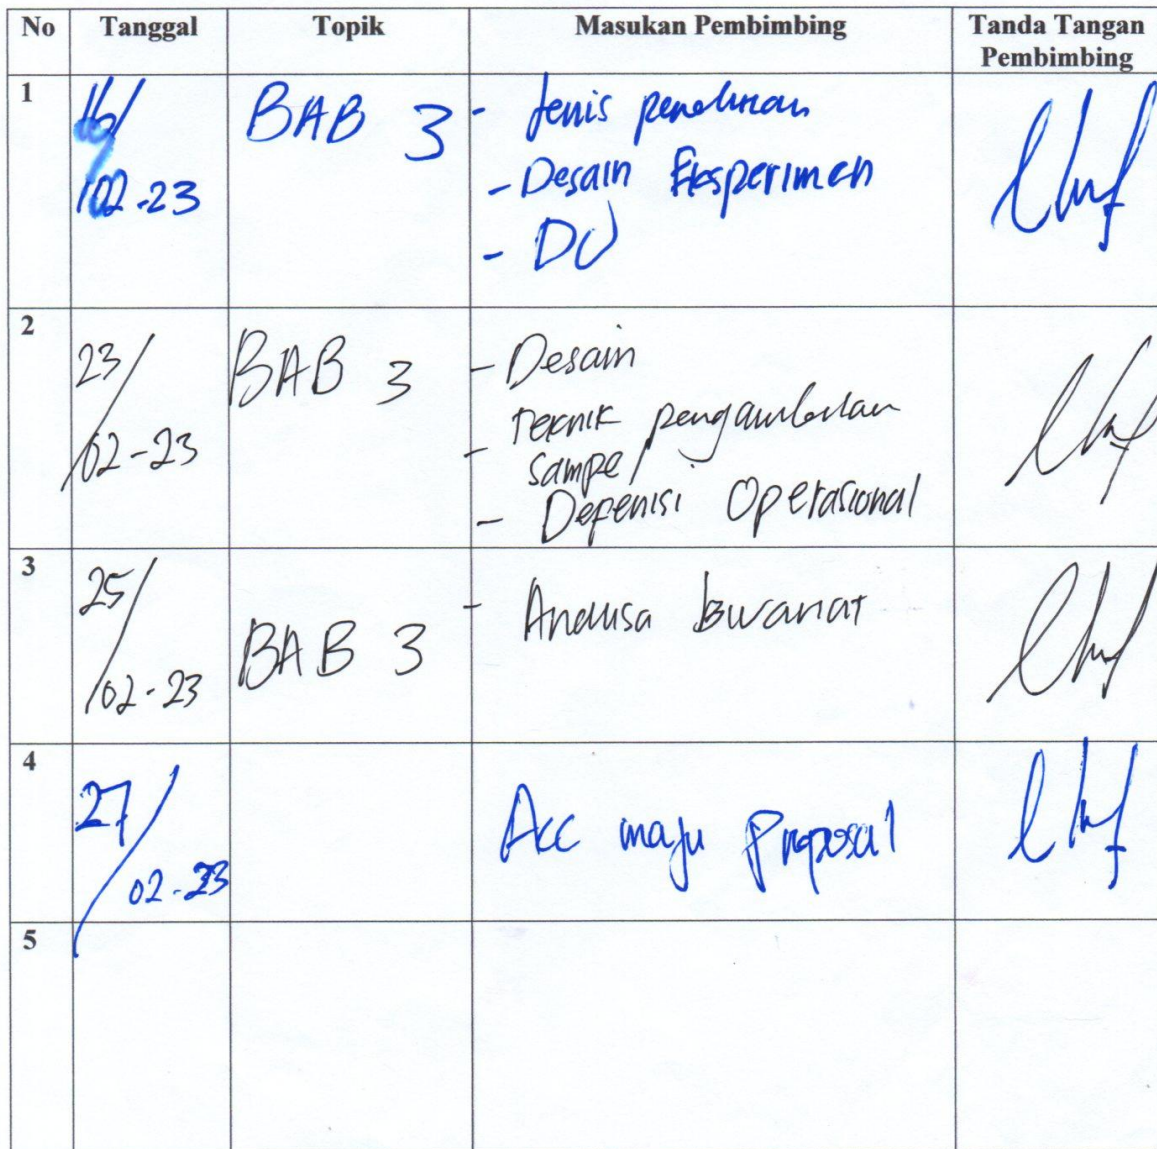 No Tanggal Topik Masukan Pembimbing Tanda Tangan
Pembimbing
1 16/ BAB 3 - Jenis penelitian
/02-23 - Desain Eksperimen
- DO
2 23/ BAB 3 - Desain
/02-23 - Teknik pengambilan
sampel
- Defenisi Operasional
3 25/ BAB 3 - Analisa bivariat
/02-23
4 27/ Acc maju proposal
/02-23
5